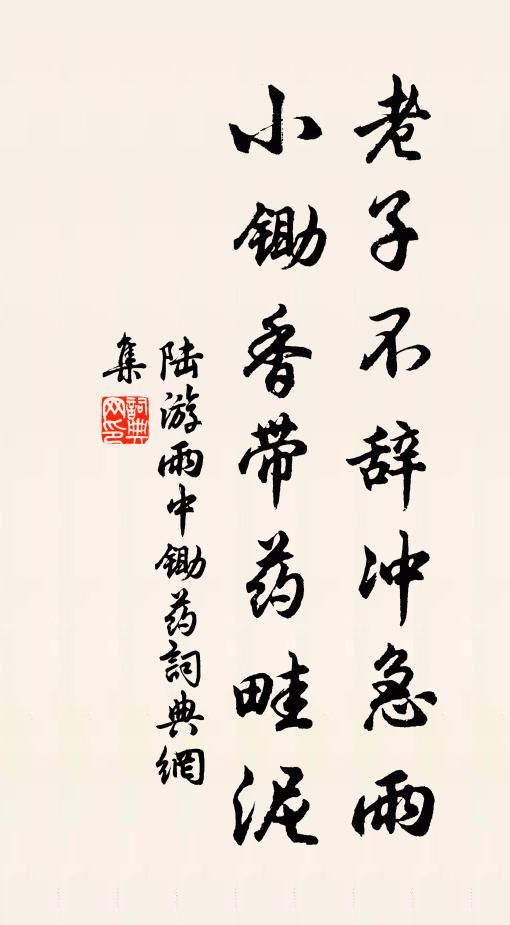 老子不辞冲急雨
小锄香带药畦泥
陆游雨中锄药詞典網
集
詞典网印